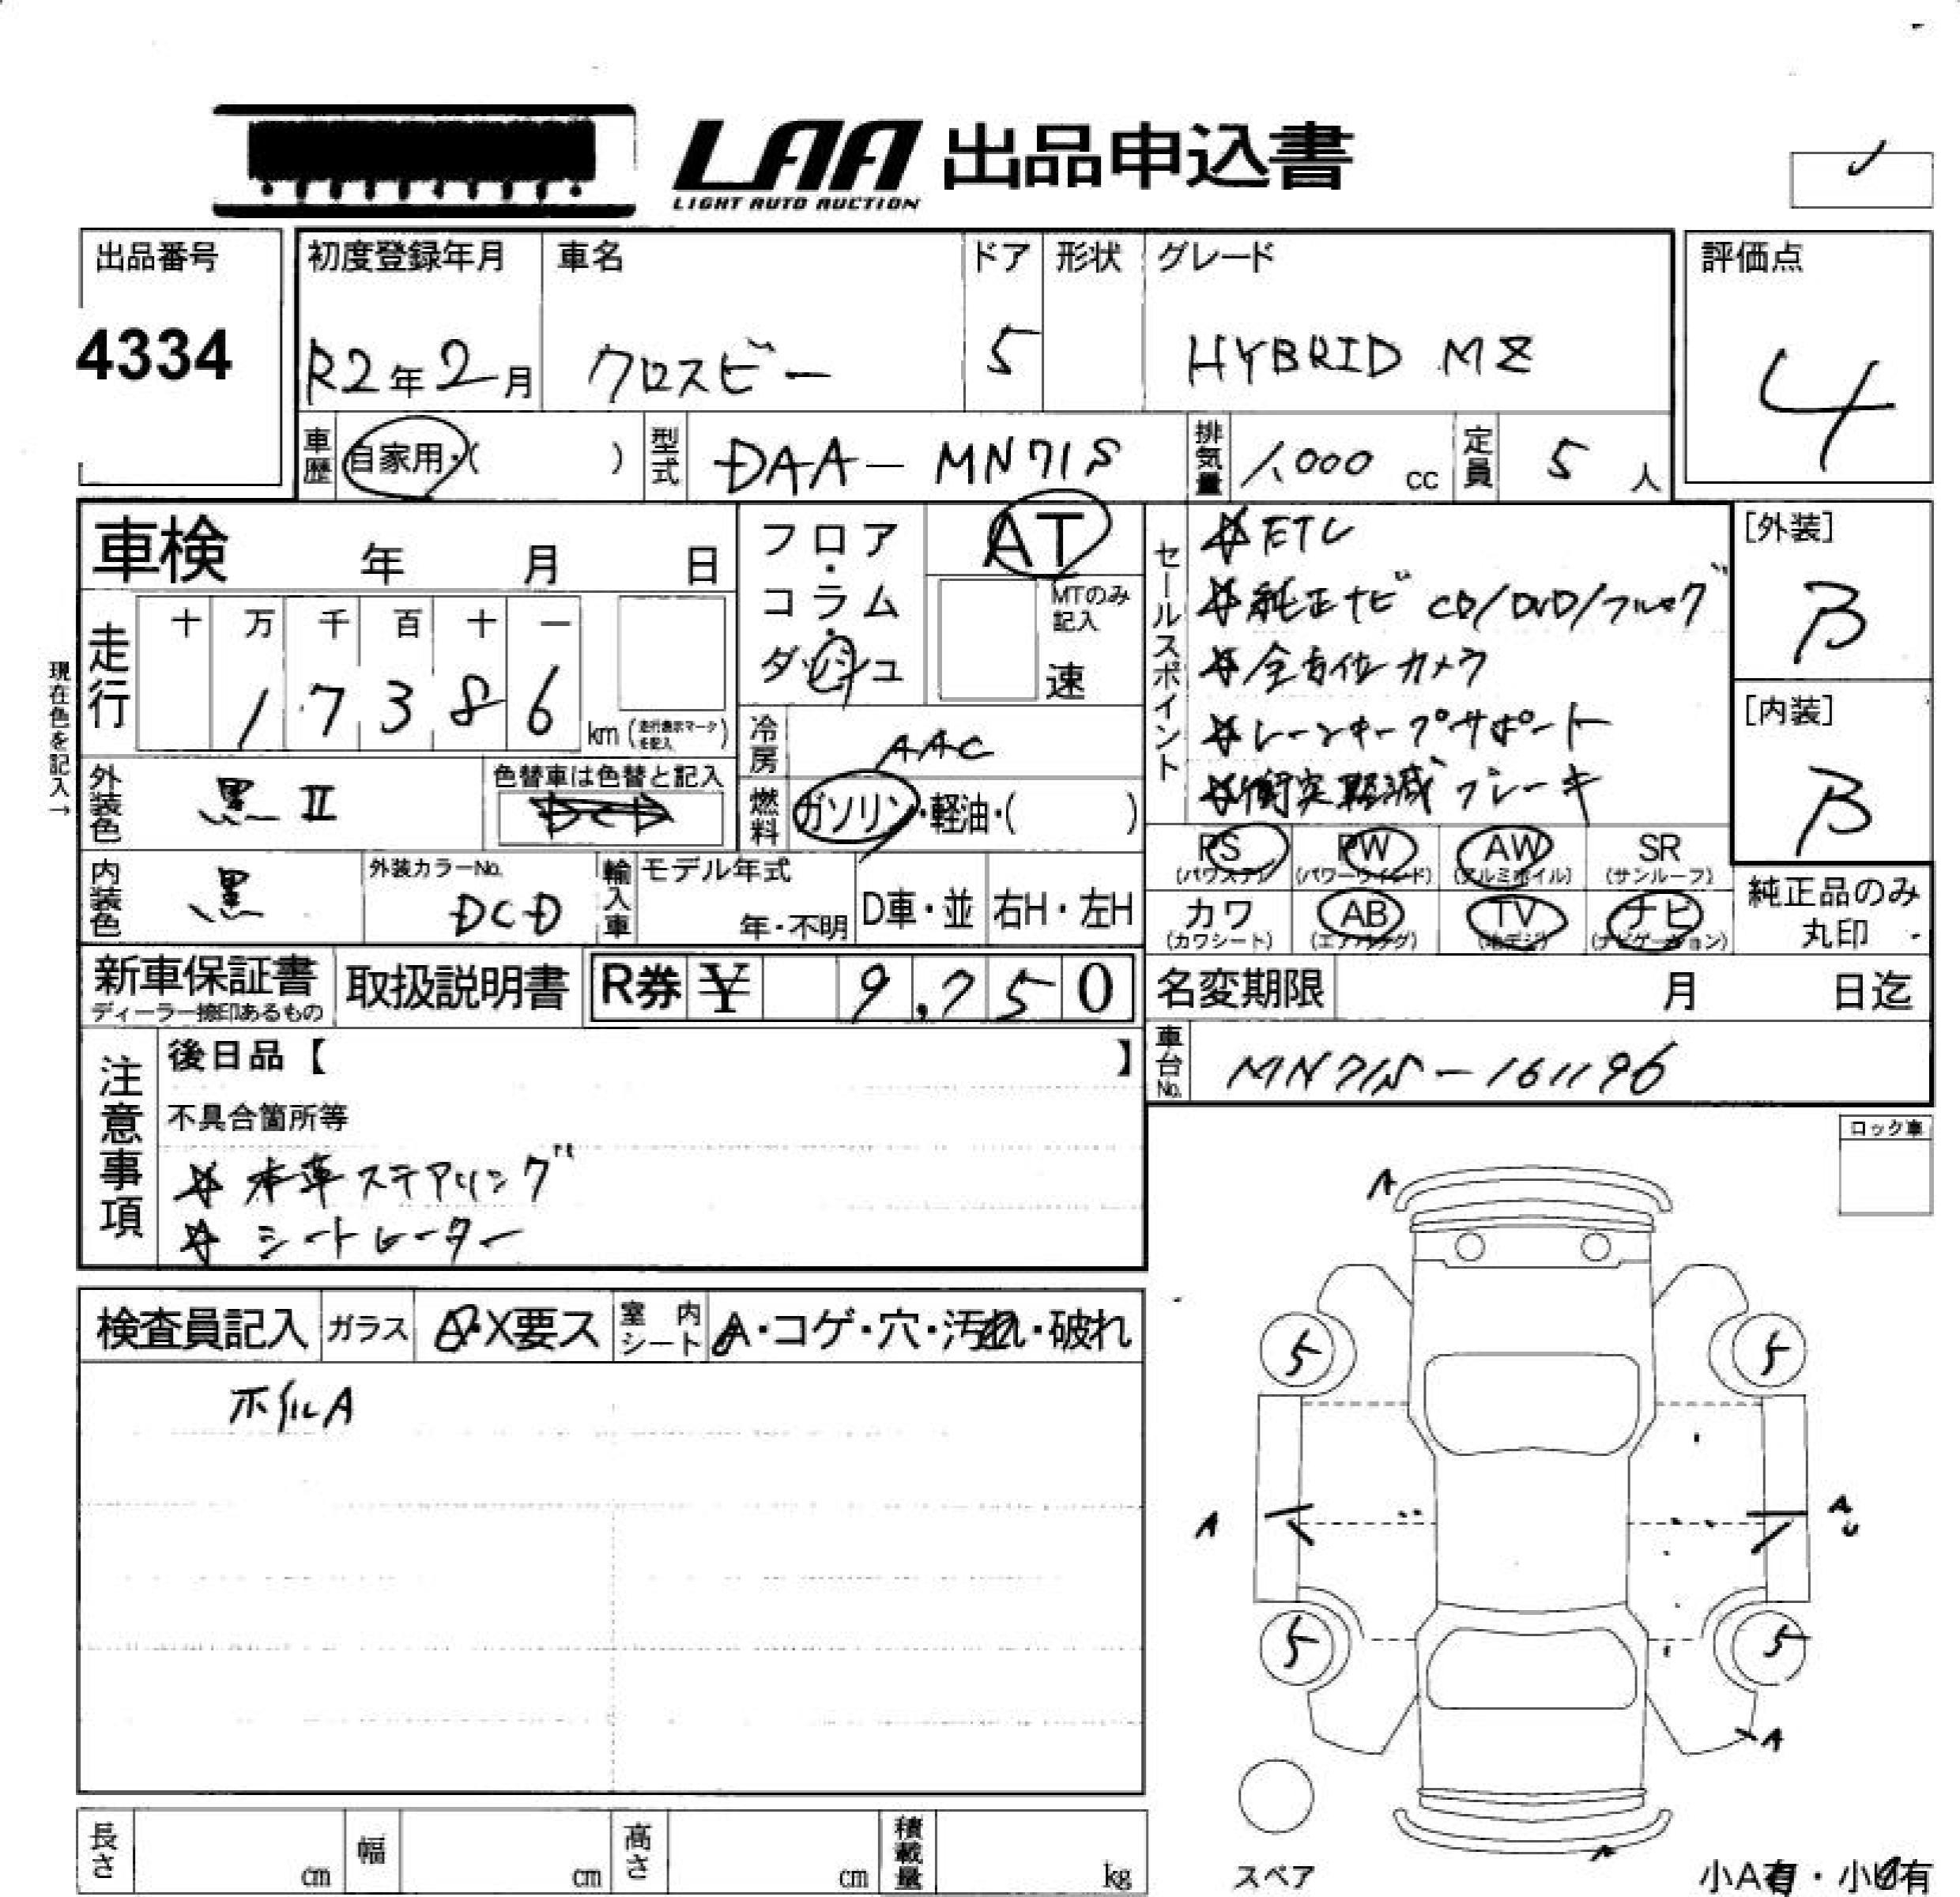 LAA 出品申込書
LIGHT AUTO AUCTION
出品番号
4334
初度登録年月
R2年2月
車名
クロスビー
ドア
5
形状
グレード
HYBRID MZ
評価点
4
車歴
自家用・( )
型式
DAA-MN71S
排気量
1,000 cc
定員
5 人
車検 年 月 日
フロア・コラム・ダッシュ
AT
MTのみ記入
速
セールスポイント
☆ETC
☆純正ナビ CD/DVD/フルセグ
☆全方位カメラ
☆レーンキープサポート
☆衝突軽減ブレーキ
[外装]
B
[内装]
B
現在色を記入→
走行
十 万 千 百 十 一
1 7 3 8 6 km (走行表示マークを記入)
冷房
AAC
外装色
黒II
色替車は色替と記入
DCD
燃料
ガソリン・軽油・( )
PS (パワステ)
PW (パワーウインド)
AW (アルミホイル)
SR (サンルーフ)
カワ (カワシート)
AB (エアバッグ)
TV (地デジ)
ナビ (ナビゲーション)
純正品のみ丸印
内装色
黒
外装カラーNo.
DCD
輸入車
モデル年式
年・不明
D車・並
右H・左H
新車保証書
ディーラー捺印あるもの
取扱説明書
R券 ¥ 9,750
名変期限 月 日迄
車台No.
MN71S-161196
注意事項
後日品【 】
不具合箇所等
☆ 本革ステアリング
☆ シートヒーター
ロック車
検査員記入
ガラス
A・X要ス
室内シート
A・コゲ・穴・汚れ・破れ
ホイルA
A
5
5
A
A
U
5
5
A
スペア
小A有・小U有
長さ cm
幅 cm
高さ cm
積載量 kg